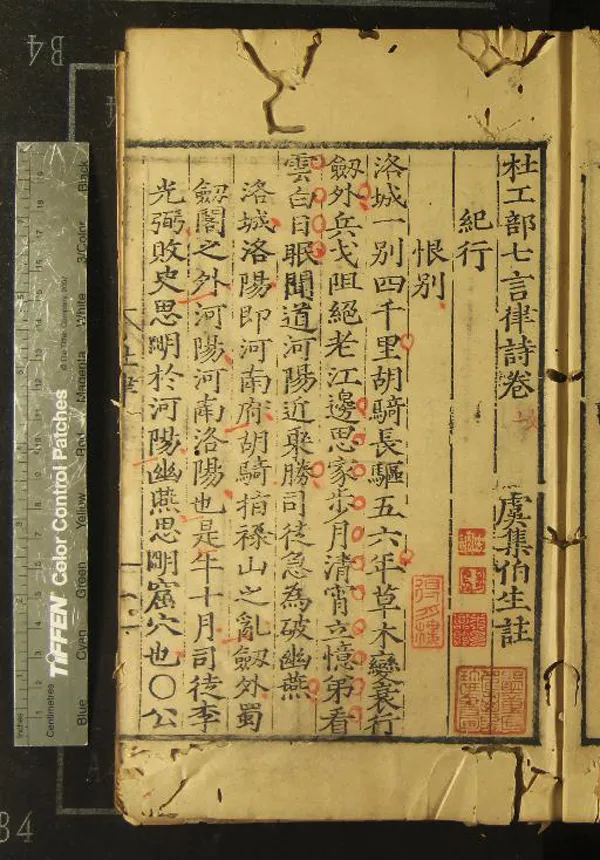 杜工部七言律詩卷 虞集伯生註
紀行
恨別
洛城一別四千里胡騎長驅五六年草木變衰行
劔外兵戈阻絕老江邊思家步月清宵立憶弟看
雲白日眠聞道河陽近乘勝司徒急為破幽燕
洛城洛陽即河南府胡騎指祿山之亂劔外蜀
劔閣之外河陽河南洛陽也是年十月司徒李
光弼敗史思明於河陽幽燕思明窟穴也〇公
得多樓
B4
B4
TIFFEN Color Control Patches
© The Tiffen Company, 2007
Inches
Centimetres
Blue Cyan Green Yellow Red Magenta White 3/Color Black